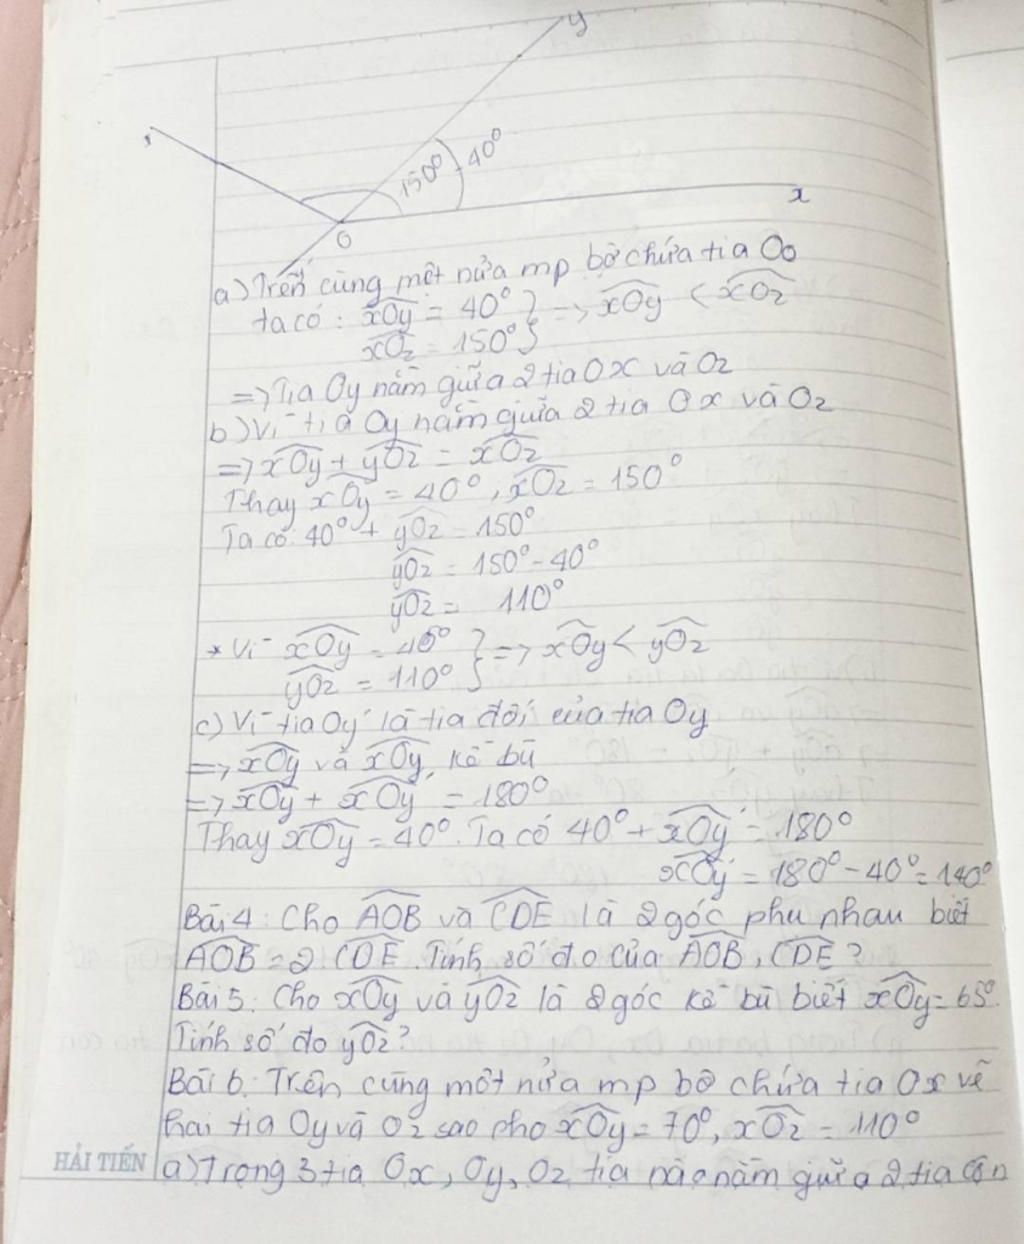 y
150° 40°
x
O
a) Trên cùng một nửa mp bờ chứa tia Oo
ta có: xOy = 40° } => xOy < xOz
xOz = 150° }
=> Tia Oy nằm giữa 2 tia Ox và Oz
b) Vì tia Oy nằm giữa 2 tia Ox và Oz
=> xOy + yOz = xOz
Thay xOy = 40°, xOz = 150°
Ta có: 40° + yOz = 150°
yOz = 150° - 40°
yOz = 110°
* Vì xOy = 40° } => xOy < yOz
yOz = 110° }
c) Vì tia Oy' là tia đối của tia Oy
=> xOy và xOy, kề bù
=> xOy + xOy' = 180°
Thay xOy = 40°. Ta có 40° + xOy' = 180°
xOy' = 180° - 40° = 140°
Bài 4: Cho AOB và CDE là 2 góc phụ nhau biết
AOB = 2 CDE. Tính số đo của AOB, CDE?
Bài 5: Cho xOy và yOz là 2 góc kề bù biết xOy = 65°.
Tính số đo yOz?
Bài 6: Trên cùng một nửa mp bờ chứa tia Ox vẽ
hai tia Oy và Oz sao cho xOy = 70°, xOz = 110°
HẢI TIẾN a) Trong 3 tia Ox, Oy, Oz tia nào nằm giữa 2 tia còn